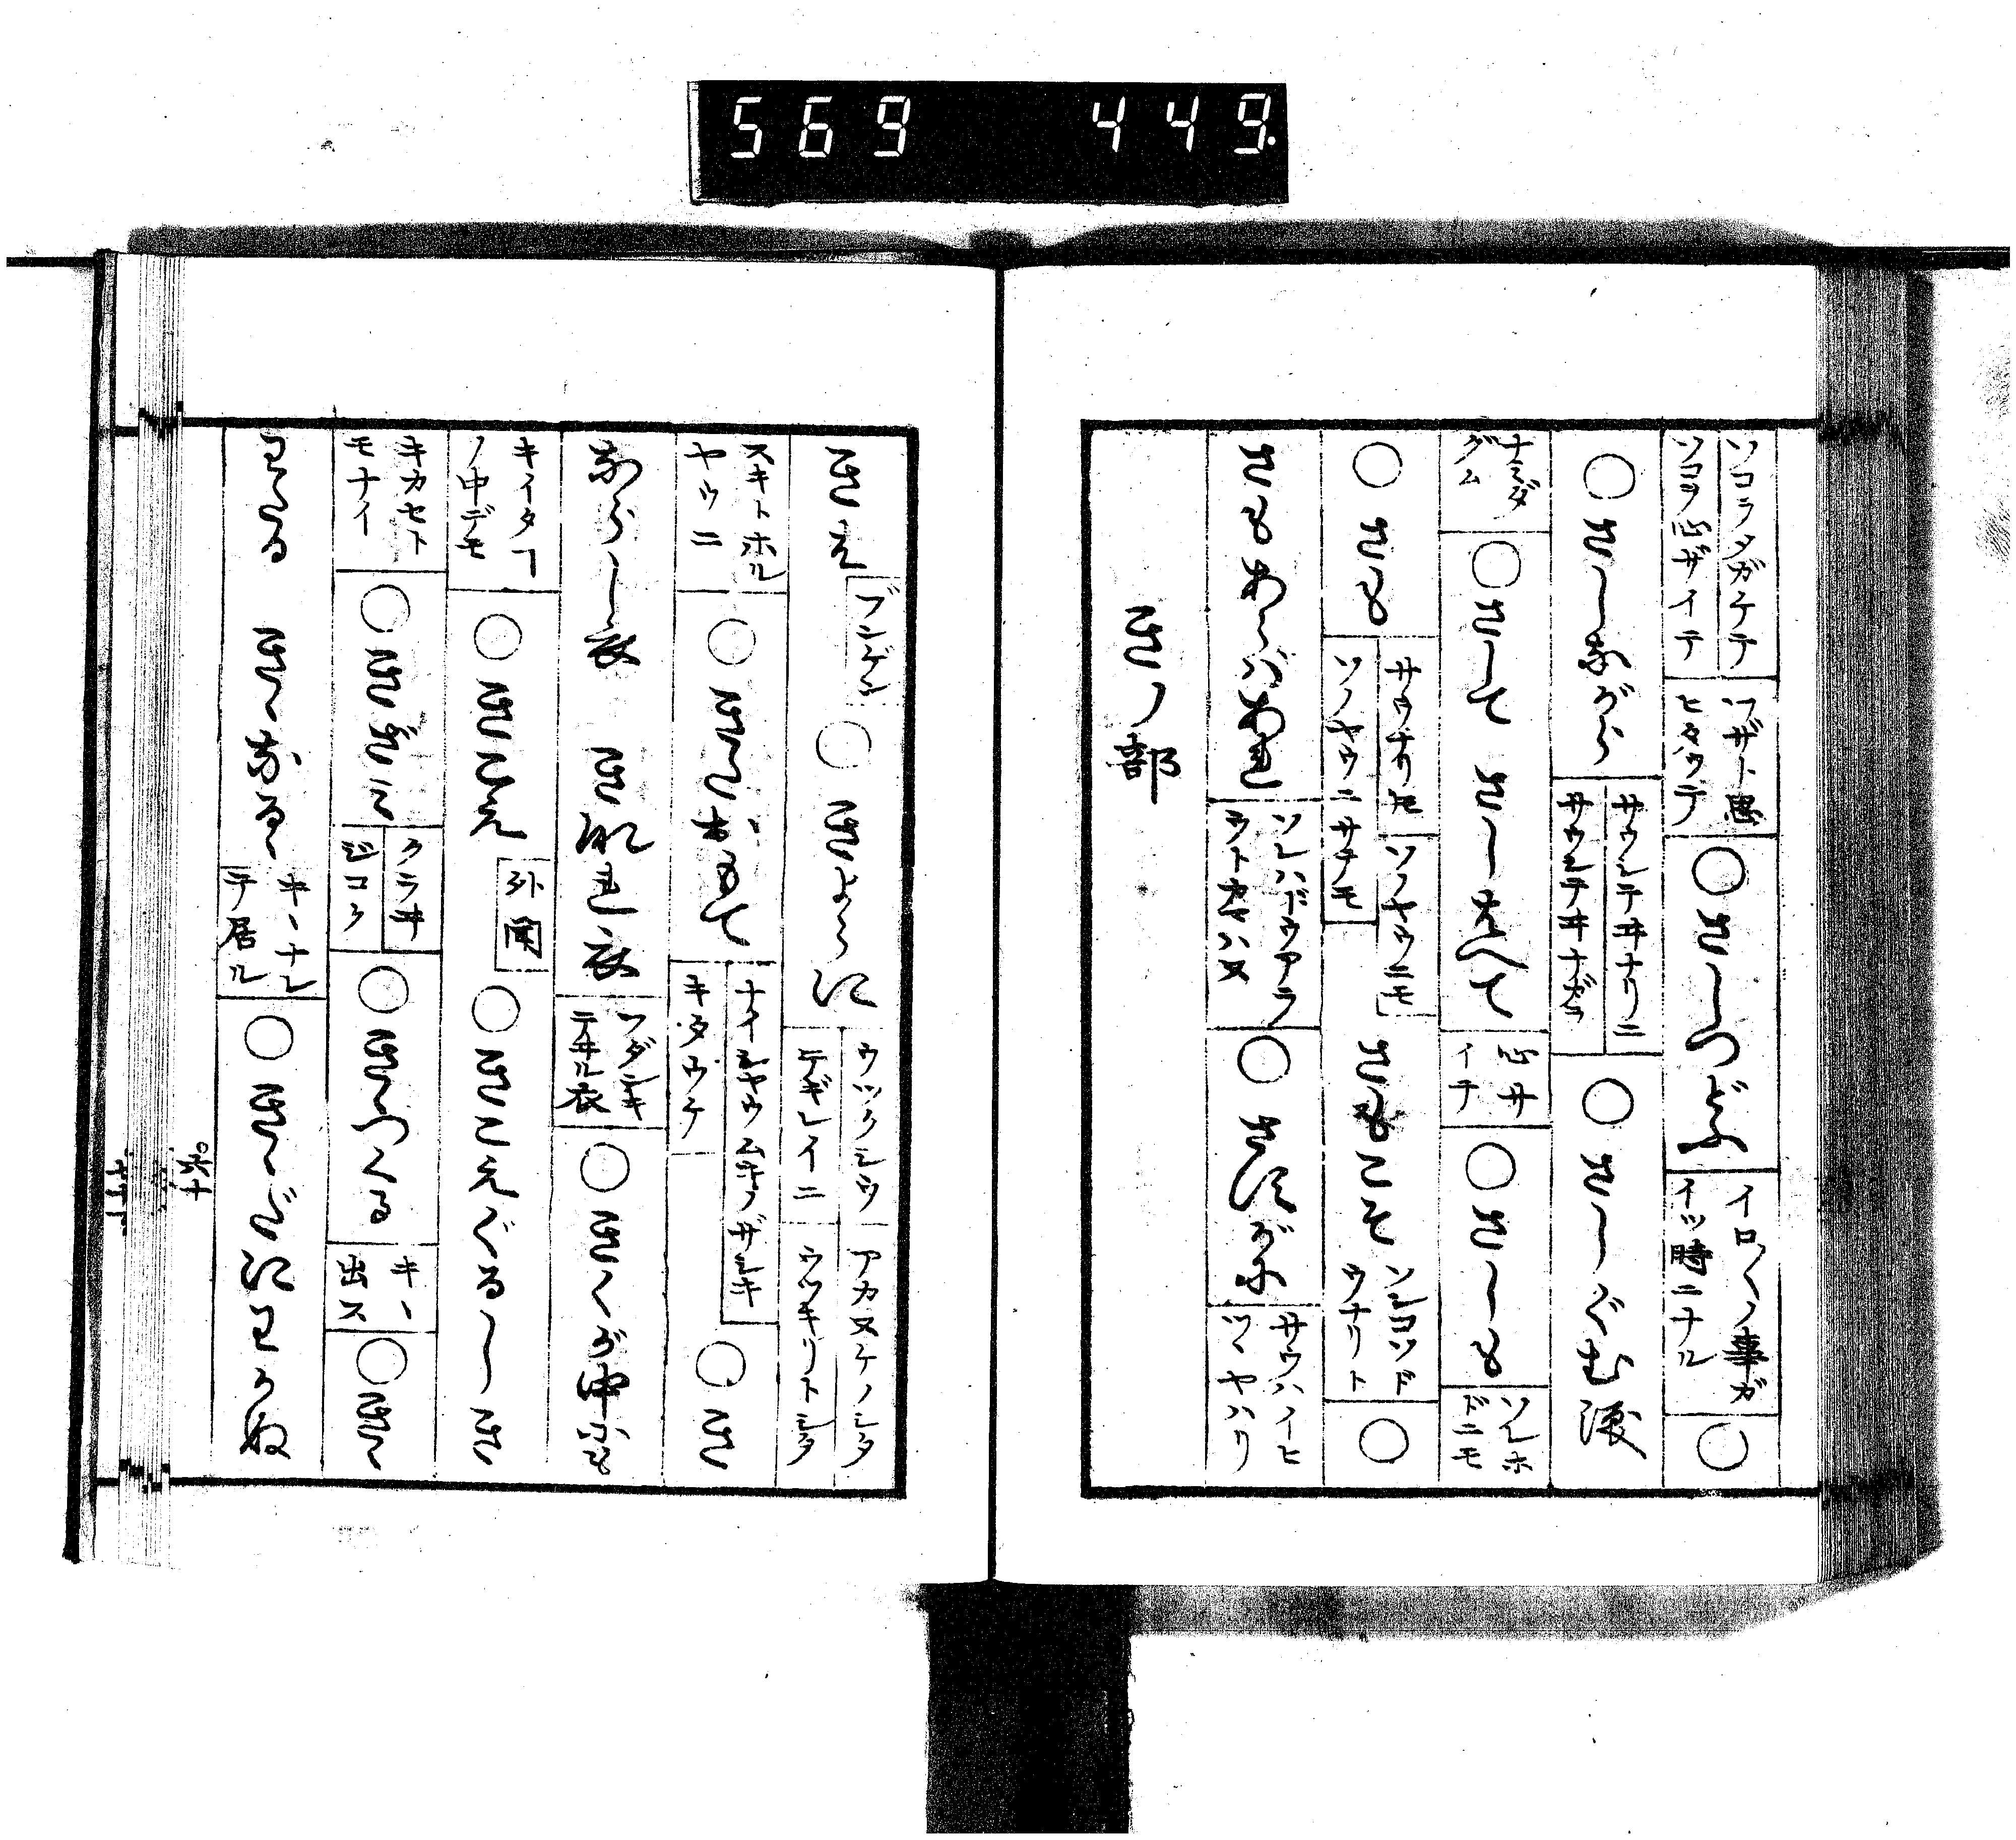 569 449.
ソコラタガケテ
ソコヲ心ザイテ
ワザト思
ヒタツテ
○さしつどふ
イロ〳〵ノ事ガ
イツ時ニナル
○
○さしながら
サウシテヰナリニ
サウシテヰナガラ
○さしぐむ涙
ナミダ
グム
○さして さしすへて
心サ
イテ
○さしも
ソレホ
ドニモ
○さも
サウナリ𪜈
ソノヤウニモ
ソノヤウニサテモ
さもこそ
ソレコソド
ウナリト
○
さもあらばあれ
ソレハドウアラ
ウトカマハヌ
○さすがに
サウハイヒ
ツヽヤハリ
きノ部
きえ
ブンゲン
○きよらに
ウツクシウ
テギレイニ
アカヌケノシタ
ウツキリトシタ
スキトホル
ヤウニ
○きたおもて
ナイシヤウムキノザシキ
キタウケ
○き
ならし衣 きなれ衣
フダンキ
テヰル衣
○きくが中にも
キイタヿ
ノ中デモ
○きこえ
外聞
○きこえぐるしき
キカセト
モナイ
○きざみ
クラヰ
ジコク
○きゝつくる
キヽ
出ス
○きゝ
わたる きゝなるゝ
キヽナレ
テ居ル
○きゝだにわかぬ